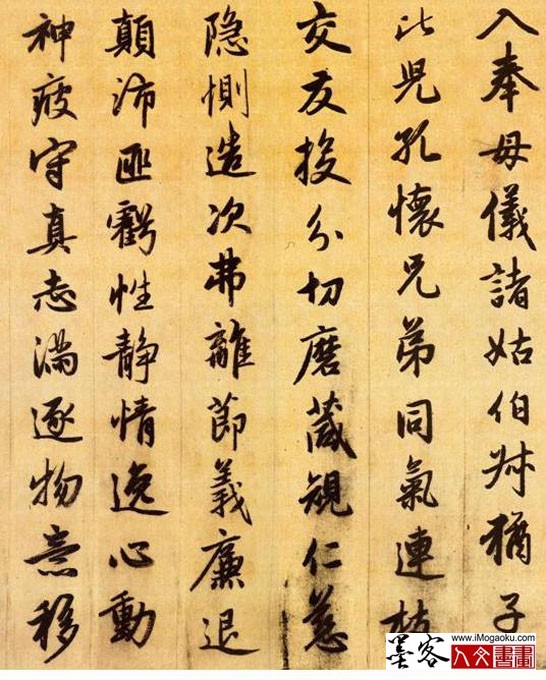 入奉母儀諸姑伯叔猶子
比兒孔懷兄弟同氣連枝
交友投分切磨葴規仁慈
隐惻造次弗離節義廉退
顛沛匪虧性静情逸心動
神疲守真志滿逐物意移
墨客
www.iMogaoku.com
人文書畫